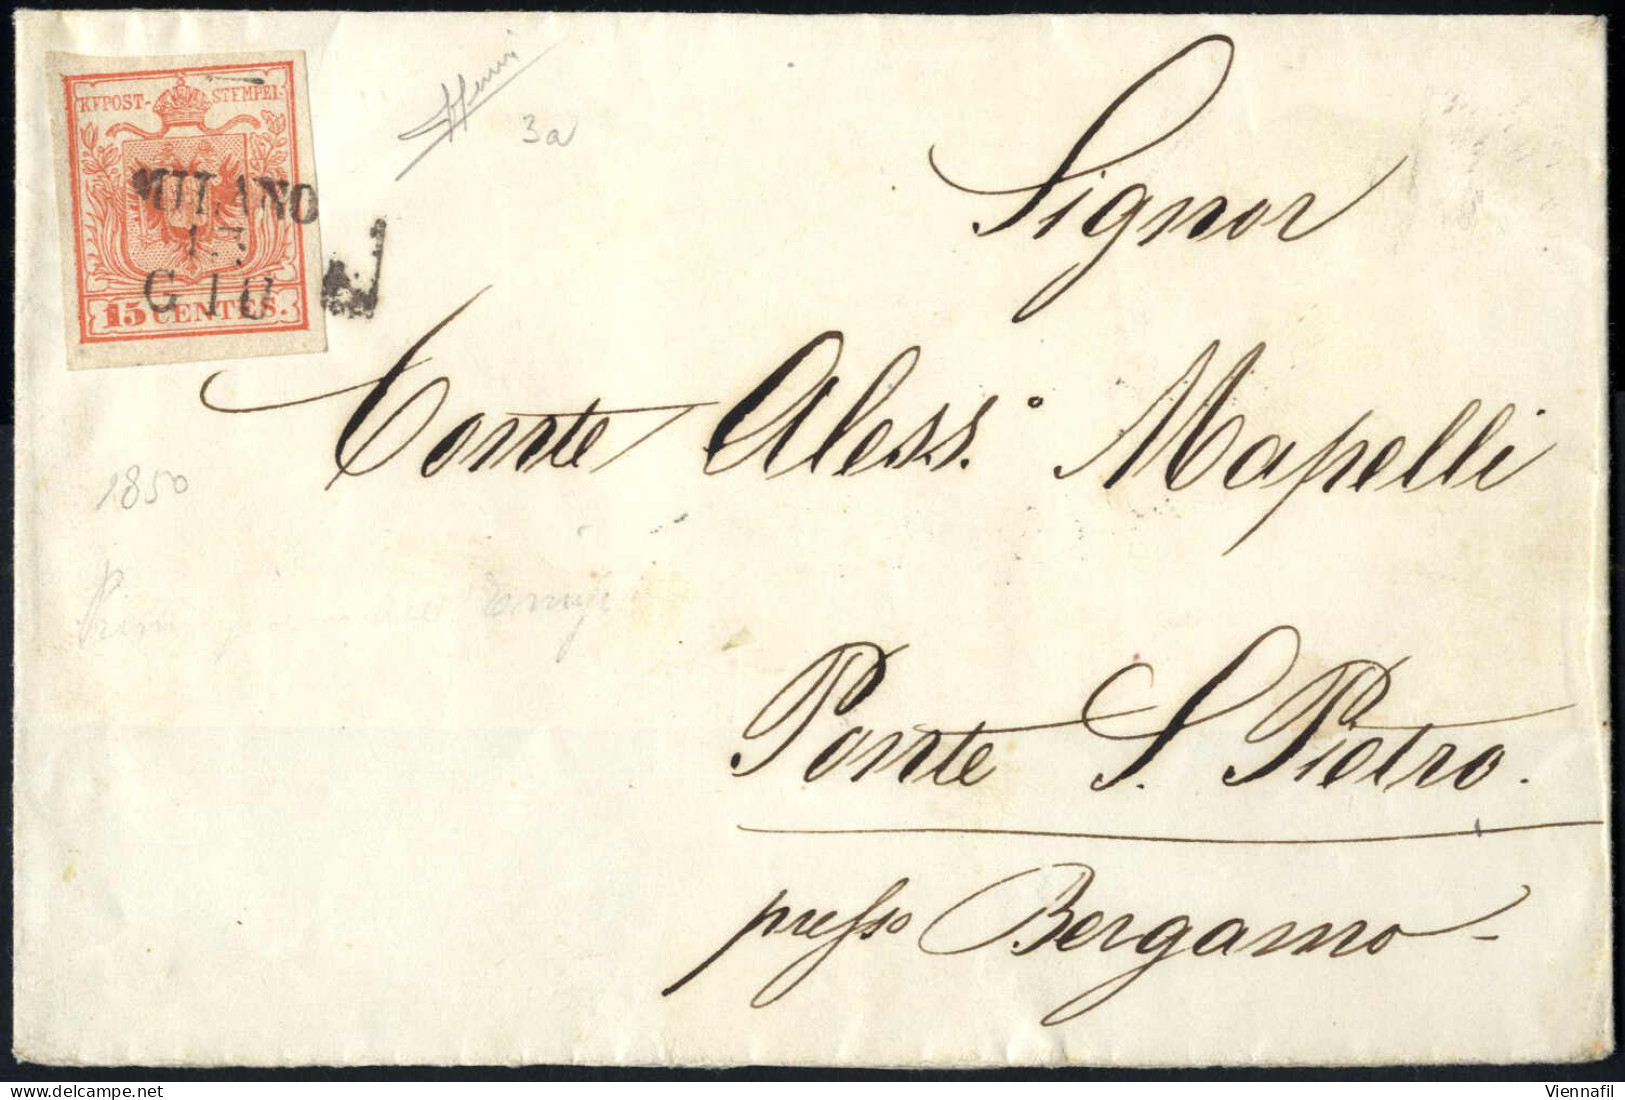 KKPOST-STEMPEL
MILANO
17.
GIU
15 CENTES.
3a
Signor
Conte Aless.° Mapelli
1850
Ponte S. Pietro.
presso Bergamo -
Viennafil